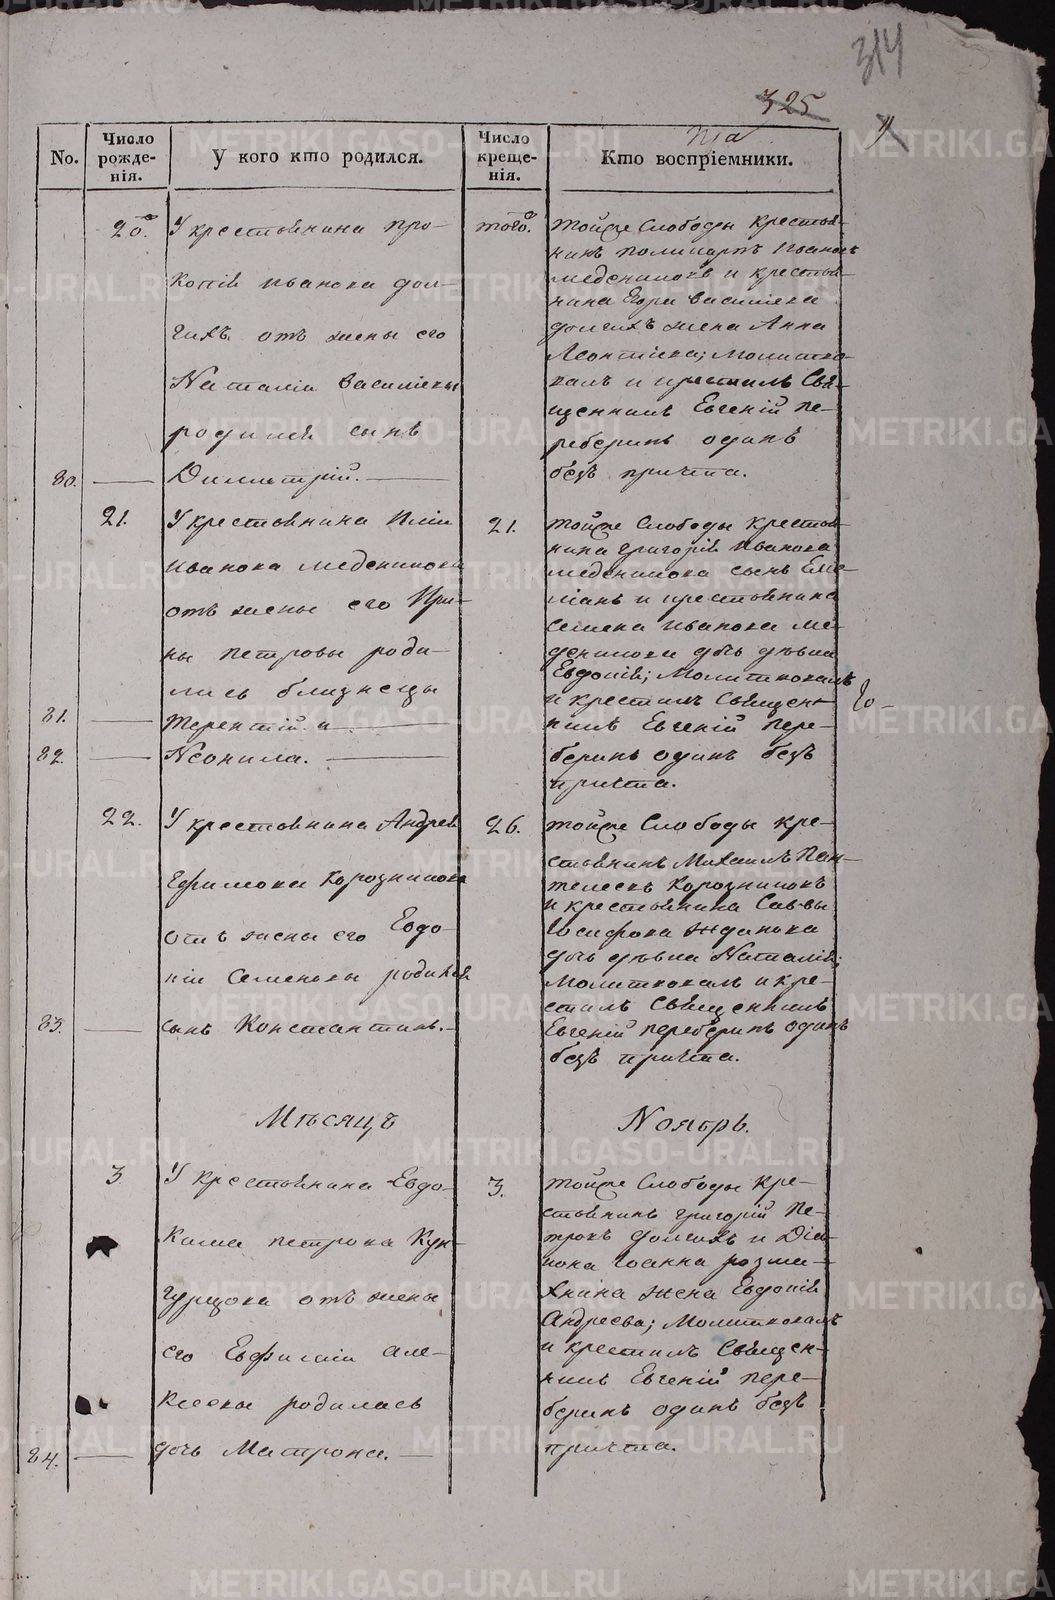 314
325
No.
Число рожде-нія.
У кого кто родился.
Число креще-нія.
Кто воспріемники.
20го.
У крестьянина Про-
копія Иванова Дол-
гихъ отъ жены его
Наталіи Васильевы
родился сынъ
80.
Димитрій.
того.
тойже Слободы Крестья-
нинъ Поликарпъ Ивановъ
Меденниковъ и крестья-
нина Егора Васильева
Долгихъ жена Анна
Леонтіева; Молитво-
валъ и крестилъ Свя-
щенникъ Евгеній Пе-
реберинъ одинъ
безъ причта.
21.
У крестьянина Иліи
Иванова Меденникова
отъ жены его Ири-
ны Петровы роди-
лись близнецы
81.
Терентій и
82.
Неонила.
21.
тойже Слободы Крестья-
нина Григорія Иванова
Меденникова сынъ Еме-
ліанъ и крестьянина
Семена Иванова Ме-
денникова дочь дѣвица
Евдокія; Молитвовалъ
и крестилъ Священ-
никъ Евгеній Пере-
беринъ одинъ безъ
причта.
22.
У крестьянина Андрея
Ефимова Корозникова
отъ жены его Евдо-
кіи Семеновы родился
83.
сынъ Константинъ.
26.
тойже Слободы кре-
стьянинъ Михаилъ Пан-
телеевъ Корозниковъ
и крестьянина Саввы
Іосифова Жданова
дочь дѣвица Наталія;
Молитвовалъ и кре-
стилъ Священникъ
Евгеній Переберинъ одинъ
безъ причта.
Мѣсяцъ
Ноябрь.
3
У крестьянина Евдо-
кима Петрова Кун-
гурцова отъ жены
его Евфиміи Але-
ксеевы родилась
84.
дочь Матрона.
3.
тойже Слободы кре-
стьянинъ Григорій Пе-
тровъ Долгихъ и Діа-
кона Іоанна Розма-
хнина жена Евдокія
Андреева; Молитвовалъ
и крестилъ Священ-
никъ Евгеній Пере-
беринъ одинъ безъ
причта.
METRIKI.GASO-URAL.RU